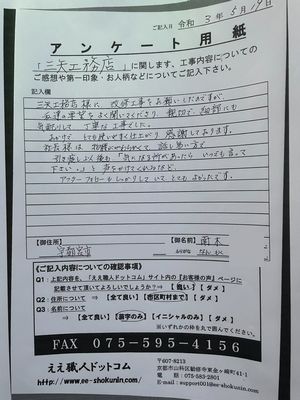 ご記入日 令和 3 年 5 月 19 日
アンケート用紙
「三矢工務店」に関します、工事内容についての
ご感想や第一印象・お人柄などについてご記入下さい。
記入欄
三矢工務店様に、改修工事をお願いしたのですが
私達の要望をよく聞いてくださり 親切で、細部にも
気配りして 丁寧な工事でした。
おかげで とても使いやすく仕上がり感謝しております。
社長様は 物腰がやわらかくて、話し易い方で
引き渡した後も「気になる所があったら いつでも言って
下さい。」と声をかけてくれるなど、
アフターフォローもしっかりしていて とてもよかったです。
御住所
宇都宮市
御名前
南木
ふりがな なんもく
《ご記入内容についての確認事項》
Q1：上記内容を、「ええ職人ドットコム」サイト内の『お客様の声』ページに
記載させて頂いてよろしいでしょうか？ ⇒ 【 良い 】 【 ダメ 】
Q2：住所について ⇒ 【全て良い】 【市区町村まで】 【 ダメ 】
Q3：名前について
⇒ 【全て良い】 【苗字のみ】 【イニシャルのみ】 【 ダメ 】
※いずれかの枠を丸で囲んでください。
FAX 075-595-4156
ええ職人ドットコム
http://www.ee-shokunin.com/
〒607-8213
京都市山科区勧修寺東金ヶ崎町41-1
電話：075-583-2801
E-mail：support001@ee-shokunin.com